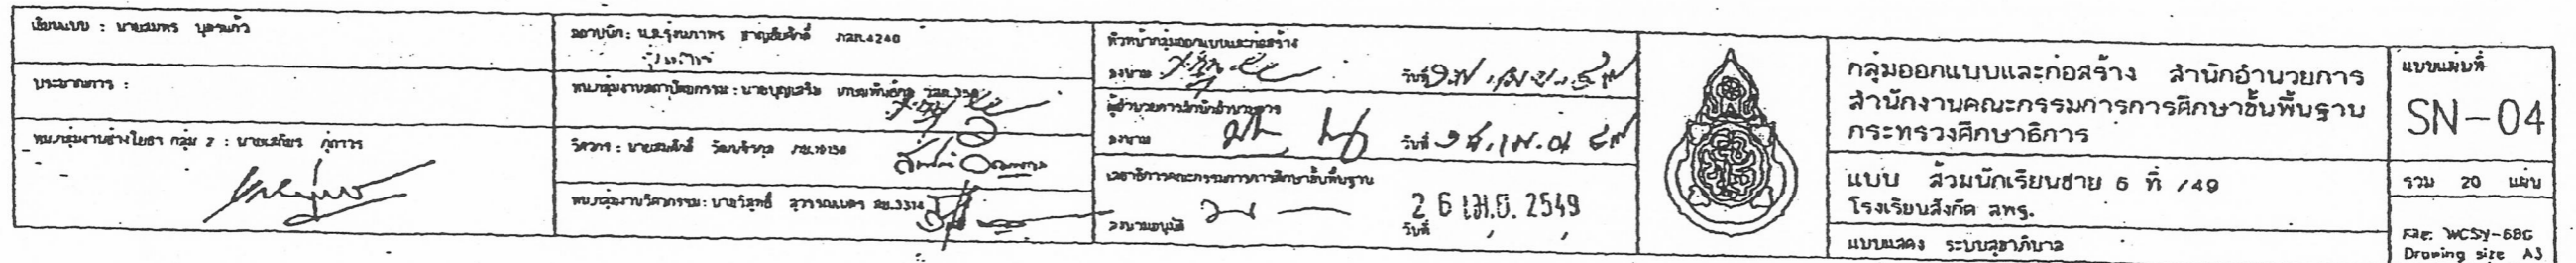 เขียนแบบ : นายสมพร บุตรแก้ว
ประมาณการ :
หน.กลุ่มงานช่างโยธา กลุ่ม 2 : นายเสถียร
สถาปนิก : น.ส.รุ่งนภาพร ชาญชัยศักดิ์ ภสถ.4240
หน.กลุ่มงานสถาปัตยกรรม : นายบุญเสริม
วิศวกร : นายสมศักดิ์
หน.กลุ่มงานวิศวกรรม : นายวิสุทธิ์ สุวรรณเนตร สย.3314
หัวหน้ากลุ่มออกแบบและก่อสร้าง
ลงนาม วันที่
ผู้อำนวยการสำนักอำนวยการ
ลงนาม วันที่
เลขาธิการคณะกรรมการการศึกษาขั้นพื้นฐาน
ลงนามอนุมัติ วันที่ 2 6 เม.ย. 2549
กลุ่มออกแบบและก่อสร้าง สำนักอำนวยการ
สำนักงานคณะกรรมการการศึกษาขั้นพื้นฐาน
กระทรวงศึกษาธิการ
แบบ ส้วมนักเรียนชาย 6 ที่ /49
โรงเรียนสังกัด สพฐ.
แบบแสดง ระบบสุขาภิบาล
แบบแผ่นที่
SN-04
รวม 20 แผ่น
File: WCSY-6BG
Drawing size A3